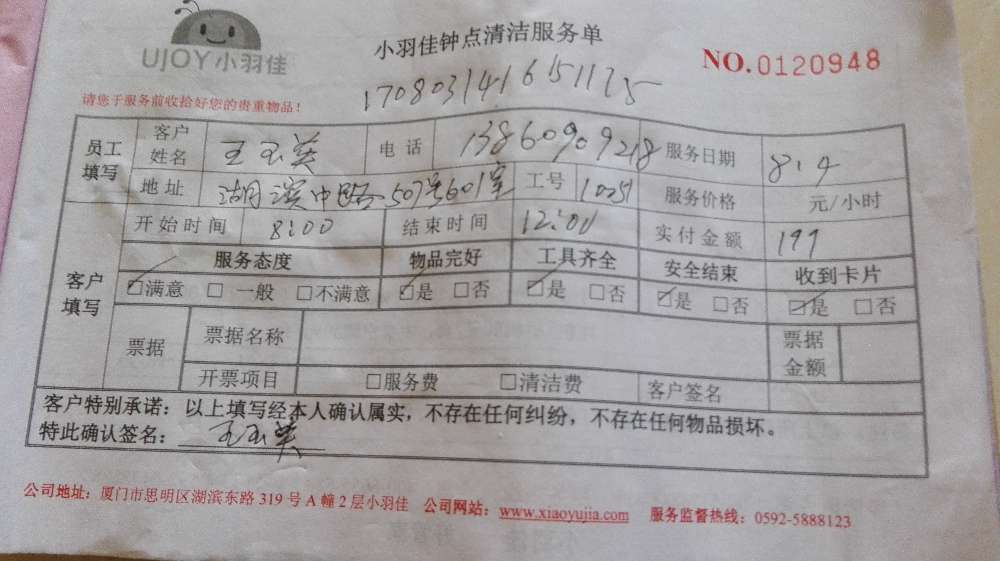 UJOY小羽佳
小羽佳钟点清洁服务单
NO.0120948
请您于服务前收拾好您的贵重物品!
1708031416151125
员工填写 客户姓名 王玉英 电话 13860909218 服务日期 8.4
地址 湖滨中路507号601室 工号 10251 服务价格 元/小时
客户填写 开始时间 8:00 结束时间 12:00 实付金额 199
服务态度 物品完好 工具齐全 安全结束 收到卡片
☑满意 □一般 □不满意 ☑是 □否 ☑是 □否 ☑是 □否 ☑是 □否
票据 票据名称 票据金额
开票项目 □服务费 □清洁费 客户签名
客户特别承诺：以上填写经本人确认属实，不存在任何纠纷，不存在任何物品损坏。
特此确认签名：王玉英
公司地址：厦门市思明区湖滨东路319号A幢2层小羽佳 公司网站：www.xiaoyujia.com 服务监督热线：0592-5888123